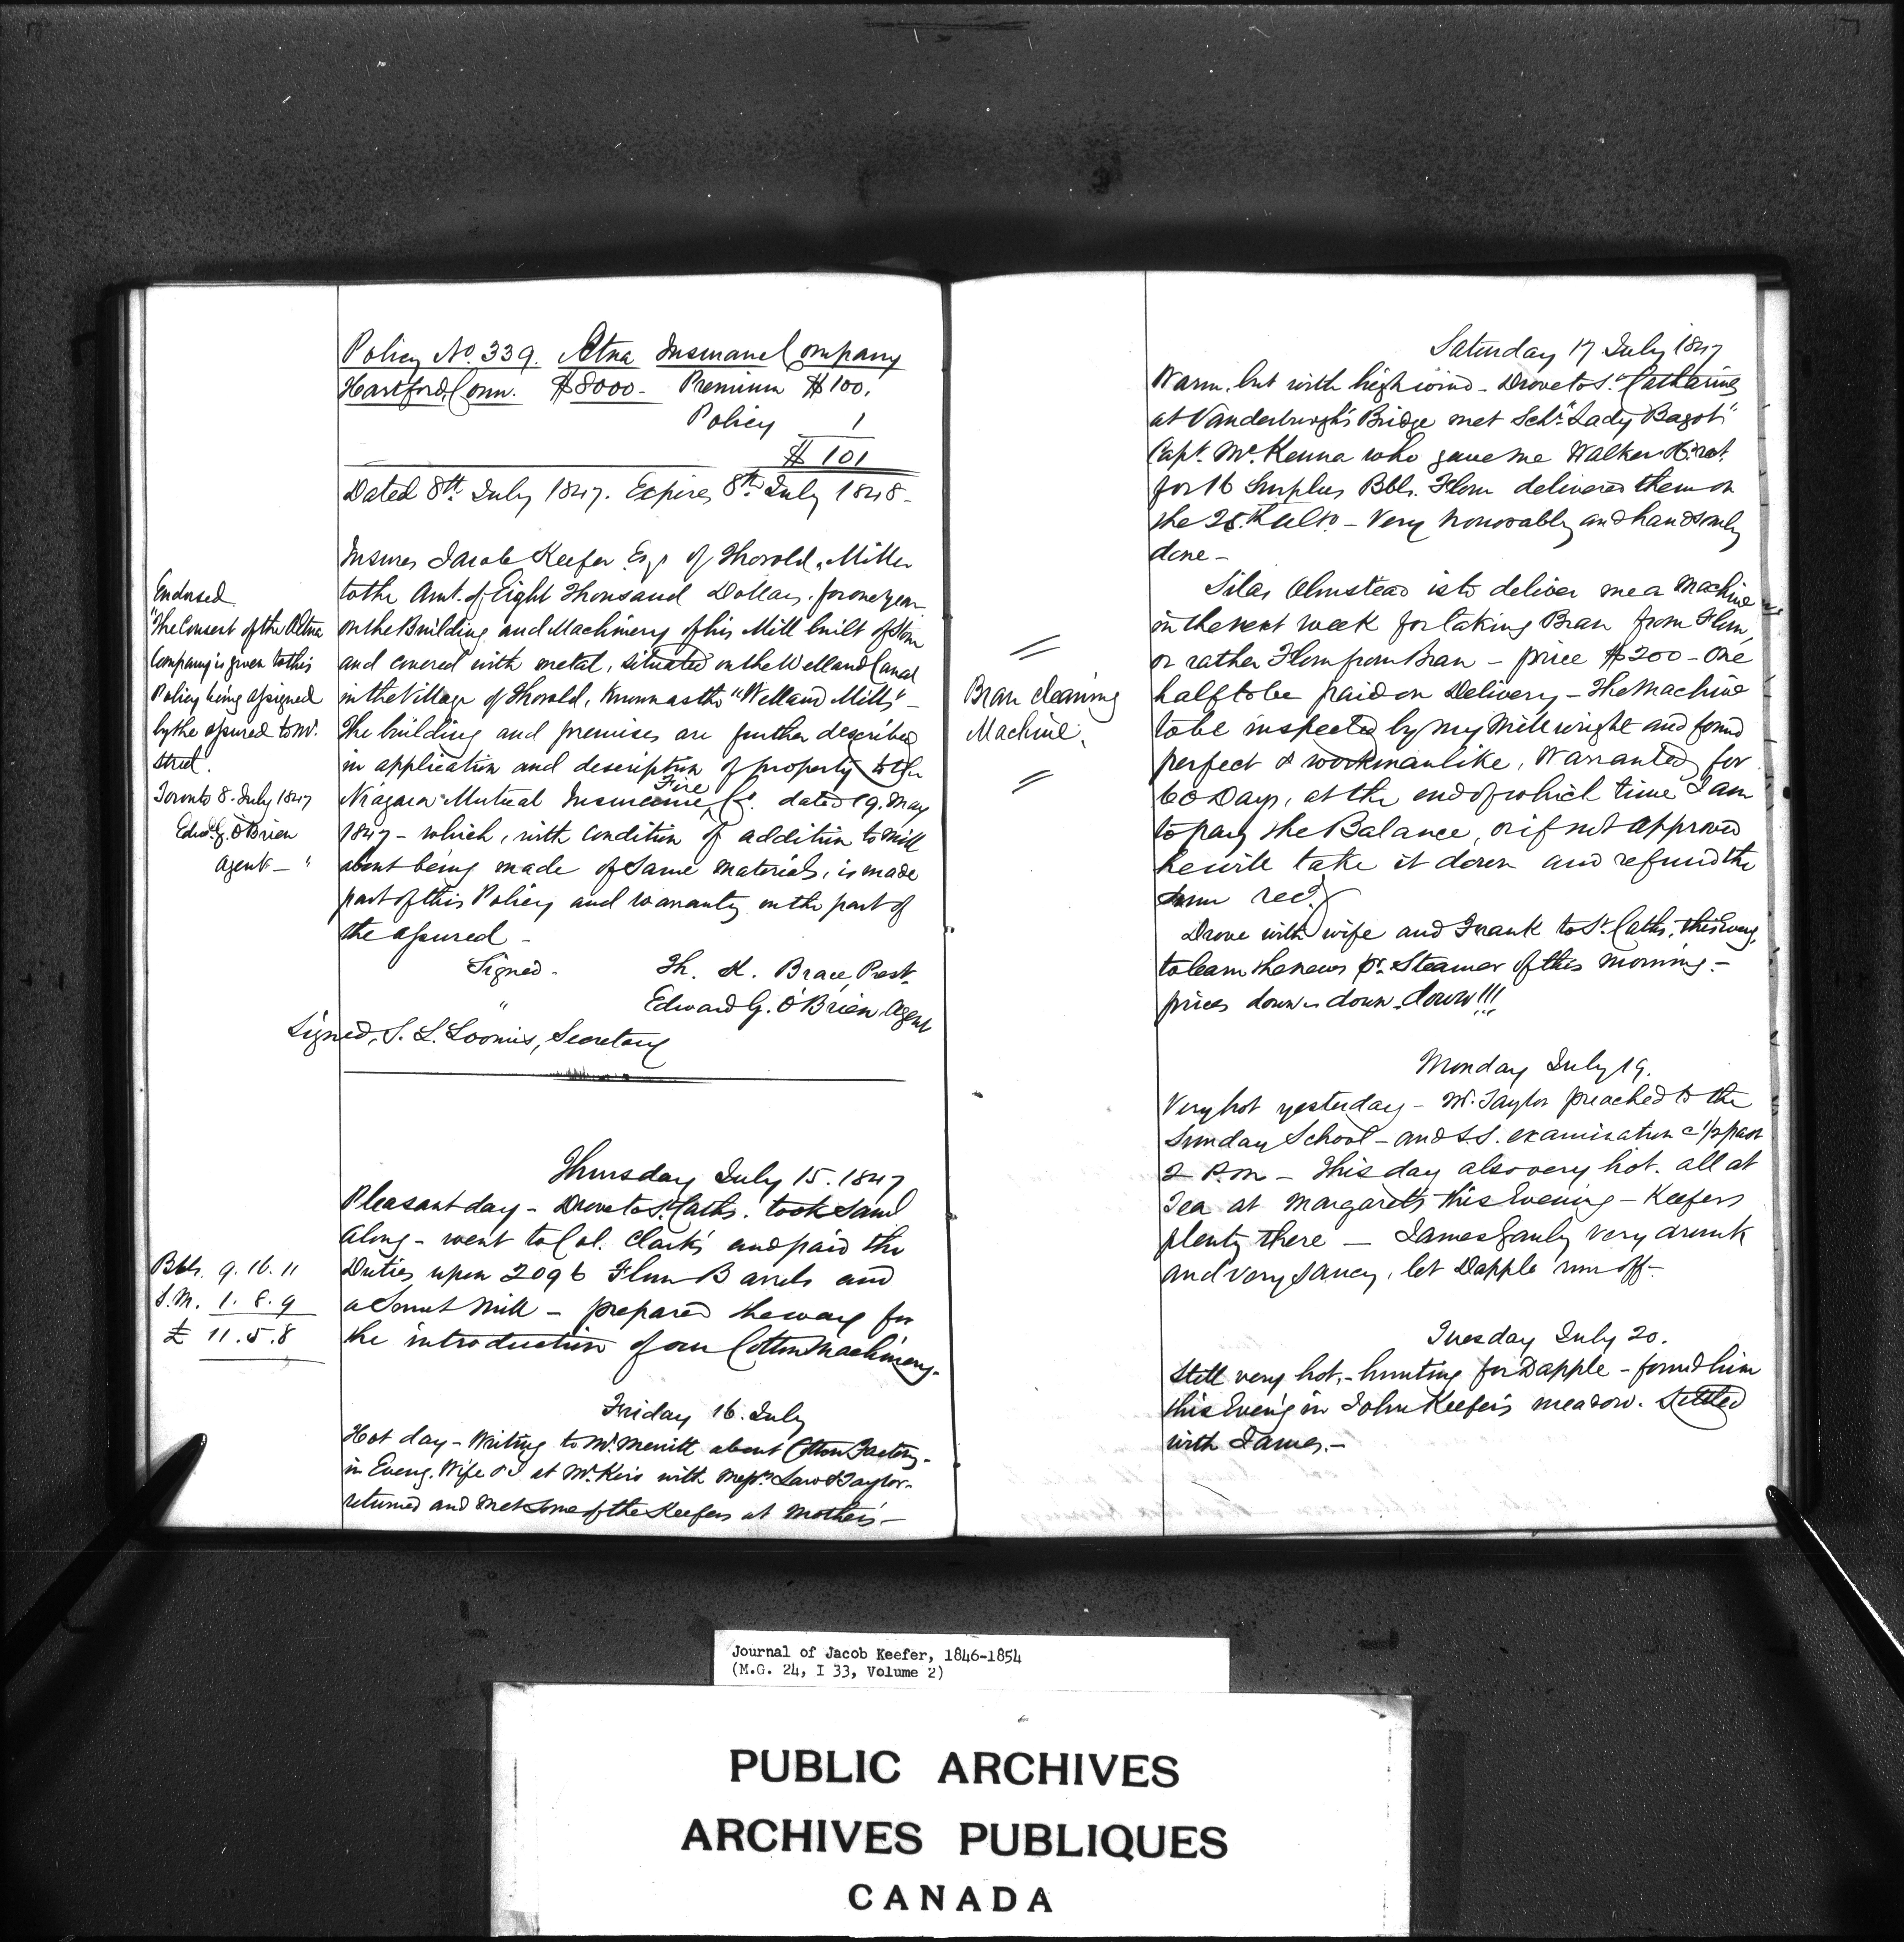 Policy No. 339. Ætna Insurance Company
Hartford, Conn. $8000 - Premium $100.
Policy 1
$101
Dated 8th July 1847. Expires 8th July 1848 -
Insures Jacob Keefer Esqr of Thorold, Miller
to the Amt. of Eight Thousand Dollars. for one year
on the Building and Machinery of his Mill built of Stone
and covered with metal, situated on the Welland Canal
in the Village of Thorold, known as the "Welland Mills" -
The building and premises are further described
in application and description of property to the
Niagara Mutual Fire Insurance Co. dated 19. May
1847 - which, with condition of addition to Mill
about being made of same materials, is made
part of this Policy and warranty on the part of
the assured -
Signed - Th. K. Brace, Prest.
" Edward G. O'Brien Agent
Signed, S. L. Loomis, Secretary
Endorsed
"The Consent of the Ætna
Company is given to this
Policy being assigned
by the assured to Mr.
Street.
Toronto 8. July 1847
Edwd G. O'Brien
Agent - "
Thursday July 15. 1847
Pleasant day - Drove to St. Caths. took Saml
along - went to Col. Clark's and paid the
Duties upon 2096 Flour Barrels and
a Smut Mill - prepared the way for
the introduction of our Cotton Machinery -
Bbls. 9. 16. 11
S.M. 1. 8. 9
£ 11. 5. 8
Friday 16. July
Hot day - Writing to Mr. Merritt about Cotton Factory -
in Eveng. Wife & I at Mr. with Messrs. Law & Taylor -
returned and met some of the Keefers at Mother's -
Saturday 17 July 1847
Warm. but with high wind - Drove to St. Catharines
at Vanderburgh's Bridge met Schr. "Lady Bagot"
Capt. McKenna who gave me Walker
for 16 Surplus Bbls. Flour delivered them on
the 28th Ulto - Very honorably and handsomely
done -
Silas Olmstead is to deliver me a Machine
in the next week for taking Bran from Flour,
or rather Flour from Bran - price $200 - One
half to be paid on Delivery - The Machine
to be inspected by my Millwright and found
perfect & workmanlike, Warranted for
60 Days, at the end of which time I am
to pay the Balance, or if not approved
he will take it down and refund the
sum recd.
Bran cleaning
Machine.
Drove with wife and Frank to St. Caths. this Eveng,
to learn the news pr. Steamer of this morning -
prices down - down - down!!!
Monday July 19.
Very hot yesterday - Mr. Taylor preached to the
Sunday School - and S.S. examination @ 1/2 past
2 P.M - This day also very hot. all at
Tea at Margaret's this Evening - Keefers
plenty there - James very drunk
and very saucy, let Dapple run off -
Tuesday July 20.
Still very hot, - hunting for Dapple - found him
this Eveng in John Keefer's meadow. Settled
with James. -
Journal of Jacob Keefer, 1846-1854
(M.G. 24, I 33, Volume 2)
PUBLIC ARCHIVES
ARCHIVES PUBLIQUES
CANADA